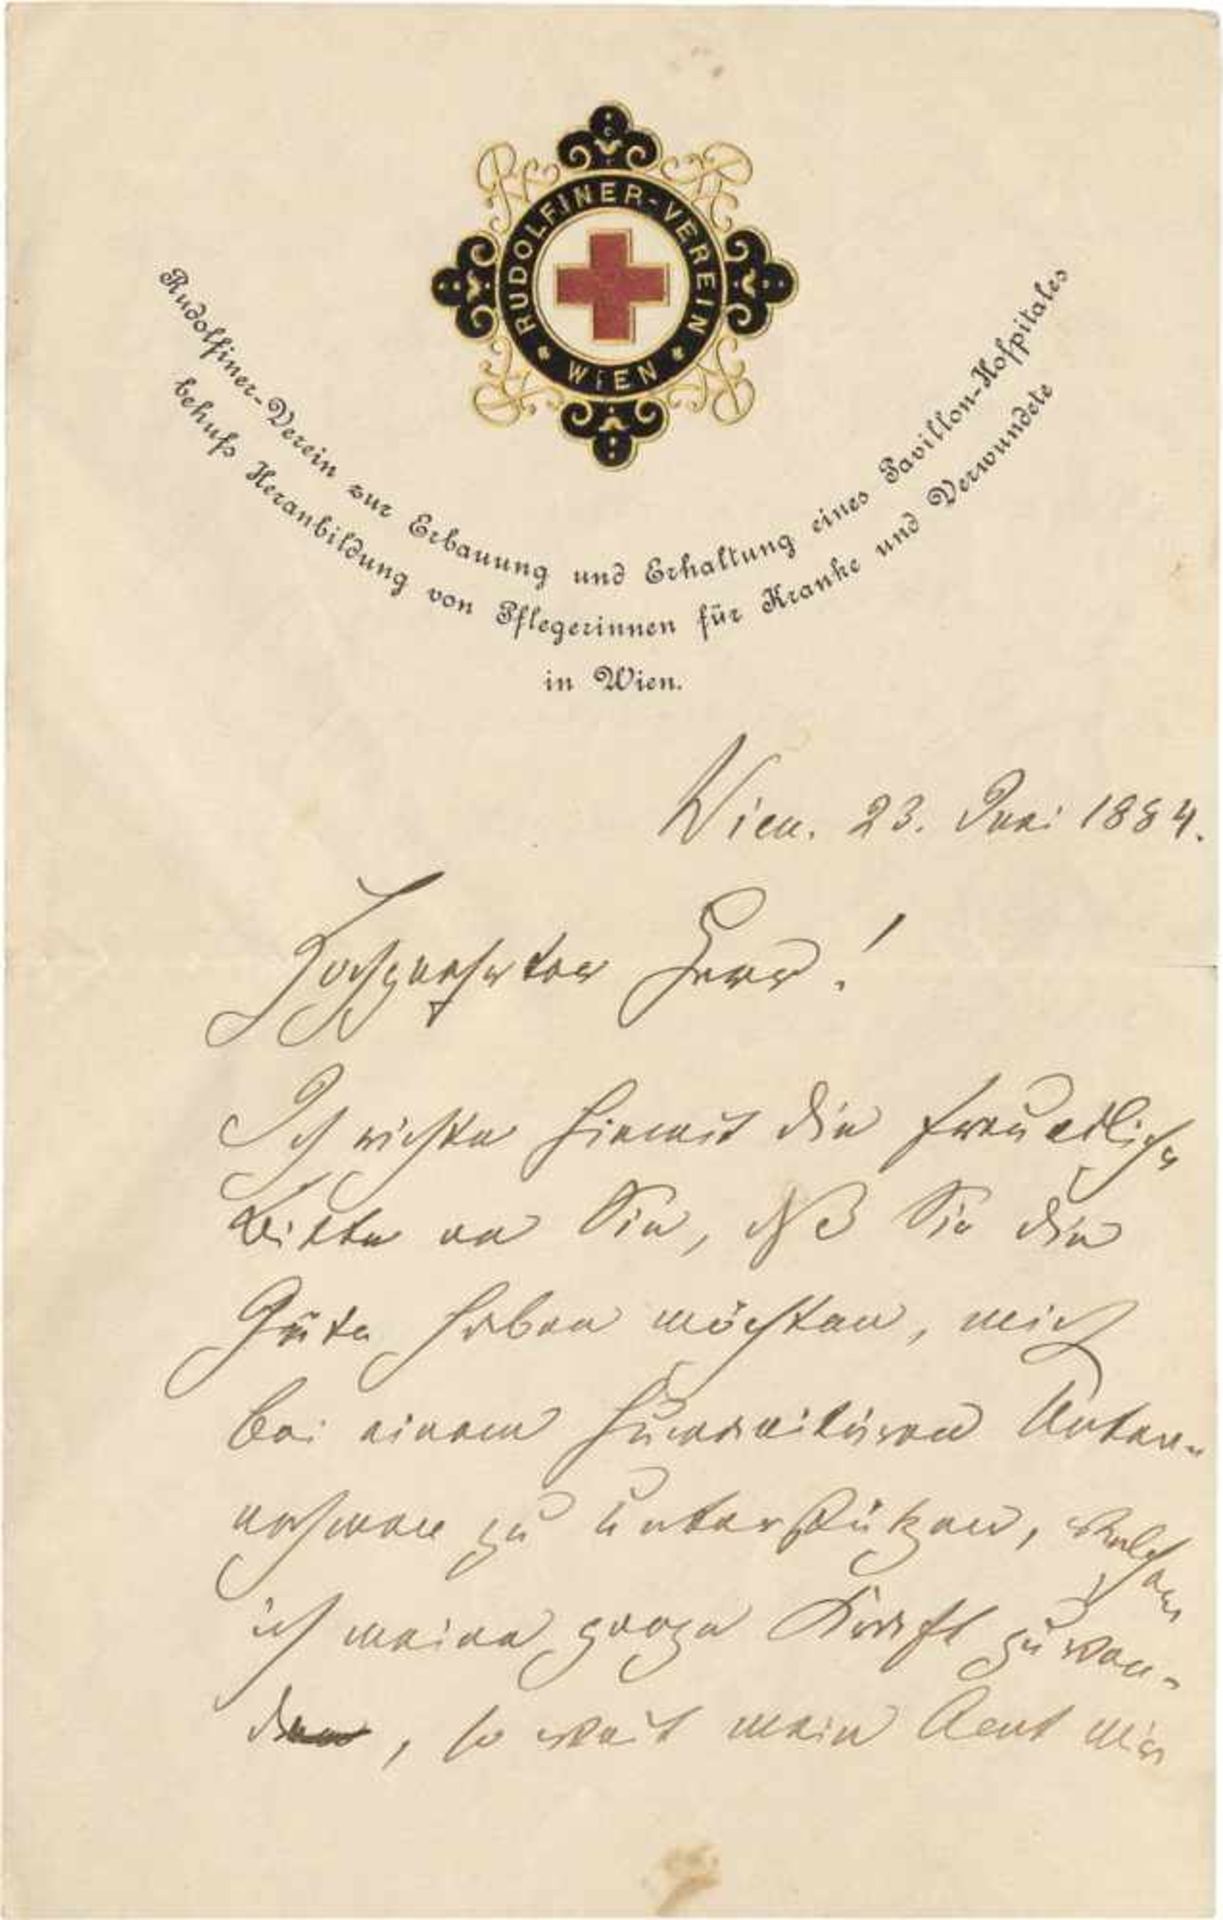 RUDOLFINER-VEREIN
* WIEN *
Rudolfiner-Verein zur Erbauung und Erhaltung eines Pavillon-Hospitales
behufs Heranbildung von Pflegerinnen für Kranke und Verwundete
in Wien.
Wien. 23. Juni 1884.
Hochgeehrter Herr!
Ich richte hiemit die freundliche
Bitte an Sie, daß Sie die
Güte haben möchten, mich
bei einem humanitären Unter-
nehmen zu unterstützen, welchem
ich meine ganze Kraft zuwen-
de, so weit mein Amt mir